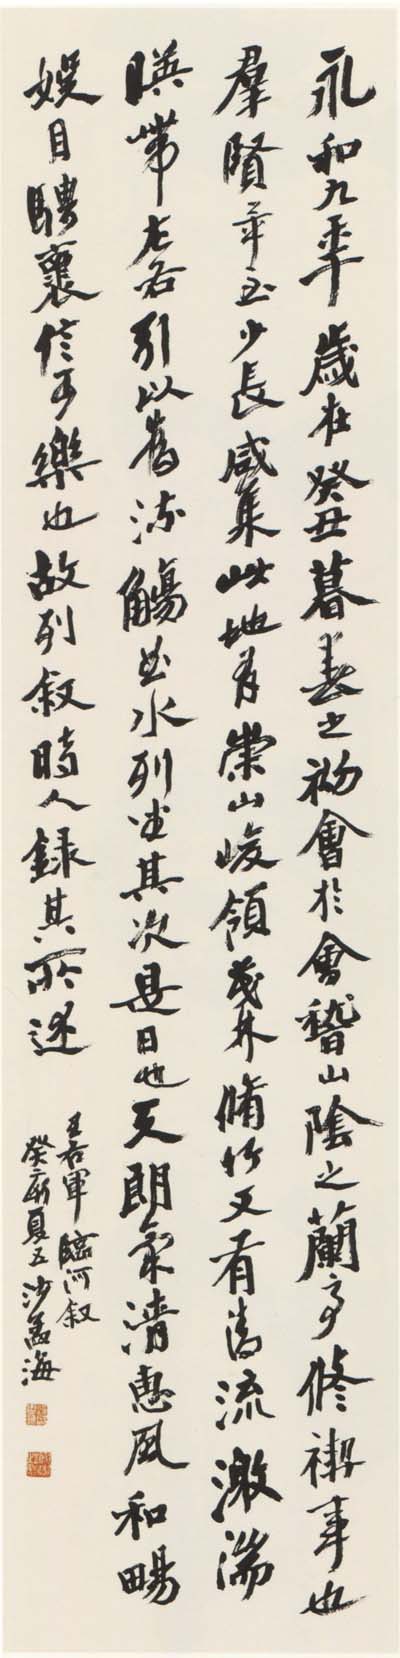 永和九年歲在癸丑暮春之初會於會稽山陰之蘭亭修禊事也
羣賢畢至少長咸集此地有崇山峻領茂林脩竹又有清流激湍
暎帶左右引以爲流觴曲水列坐其次是日也天朗氣清惠風和暢
娛目騁褱信可樂也故列叙時人録其所述
王右軍臨河叙
癸亥夏五沙孟海